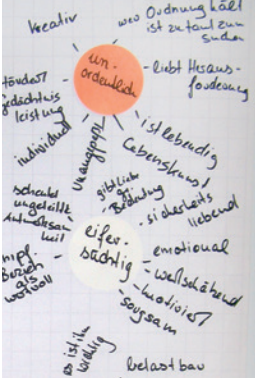 kreativ
wer Ordnung hält
ist zu faul zum
suchen
un-
ordentlich
liebt Heraus-
forderung
fördert
gedächtnis
leistung
individuell
unangepasst
ist lebendig
Lebenskunst
schenkt
ungeteilte
Aufmerksam
keit
gibt Liebe
Bedeutung
sicherheits
liebend
eifer-
süchtig
empf.
Bezieh
als
wertvoll
emotional
wertschätzend
motiviert
sorgsam
es ist ihm
wichtig
belastbar